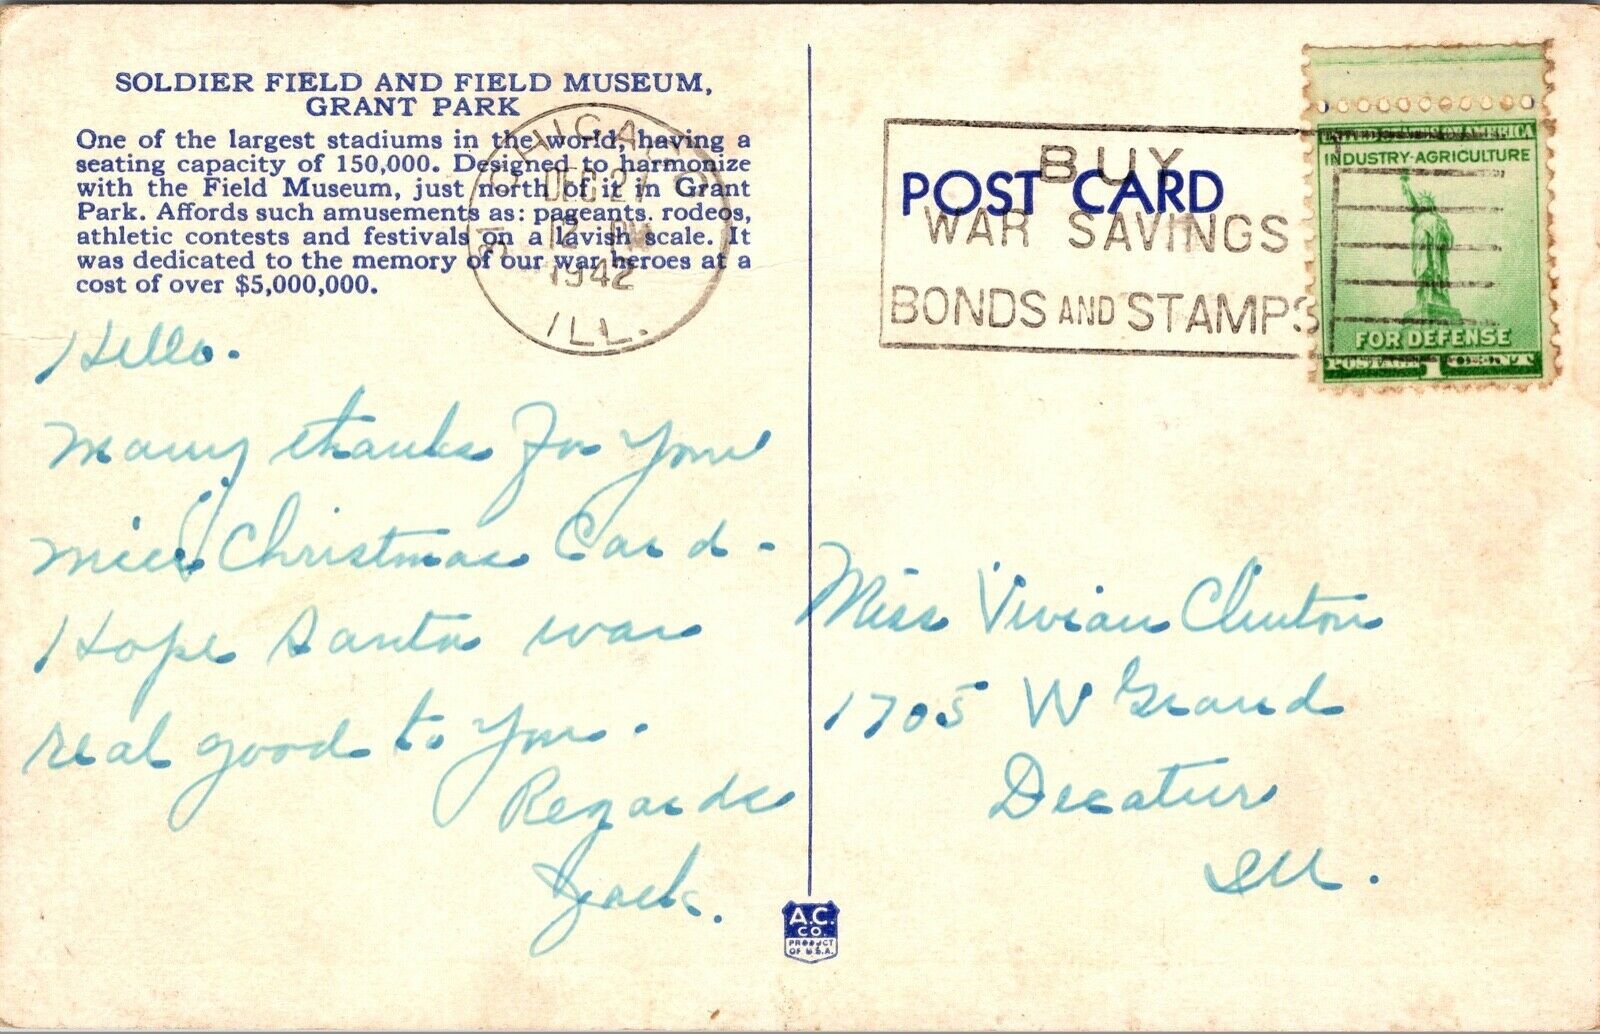 SOLDIER FIELD AND FIELD MUSEUM,
GRANT PARK
One of the largest stadiums in the world, having a
seating capacity of 150,000. Designed to harmonize
with the Field Museum, just north of it in Grant
Park. Affords such amusements as: pageants, rodeos,
athletic contests and festivals on a lavish scale. It
was dedicated to the memory of our war heroes at a
cost of over $5,000,000.
CHICAGO
DEC 27
1942
ILL.
POST CARD
BUY
WAR SAVINGS
BONDS AND STAMPS
UNITED STATES OF AMERICA
INDUSTRY-AGRICULTURE
FOR DEFENSE
POSTAGE 1 CENT
Hello.
Many thanks for your
nice Christmas Card.
Hope Santa was
real good to you.
Regards
Jack.
Miss Vivian Clinton
1705 W Grand
Decatur
Ill.
A.C.
CO.
PRODUCT
OF U.S.A.